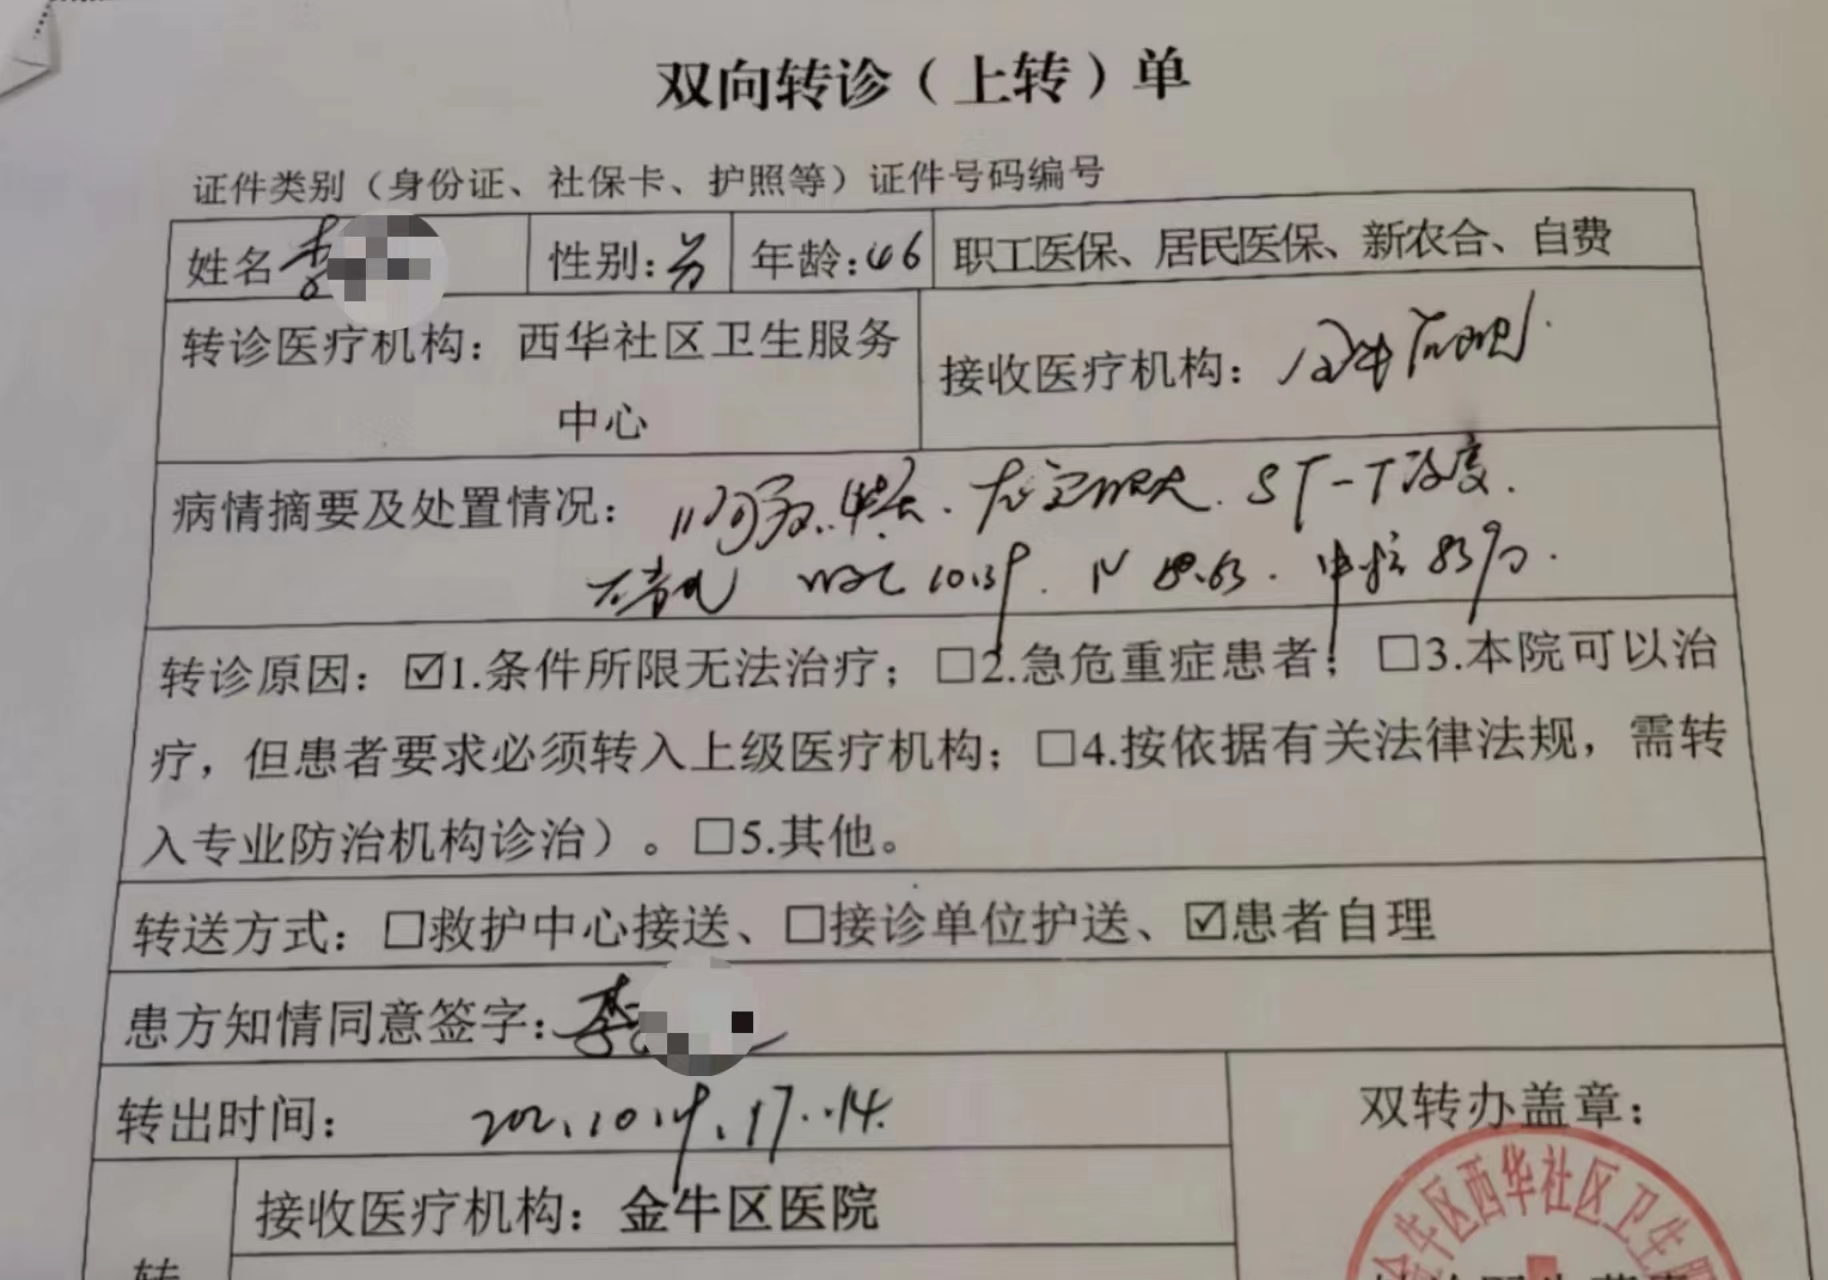 双向转诊（上转）单
证件类别（身份证、社保卡、护照等）证件号码编号
姓名 李 性别：男 年龄：46 职工医保、居民医保、新农合、自费
转诊医疗机构：西华社区卫生服务
中心
接收医疗机构：
病情摘要及处置情况： ST-T改变.
WBC 10.39. N 8.63. 中性 83%.
转诊原因：☑1.条件所限无法治疗；□2.急危重症患者；□3.本院可以治
疗，但患者要求必须转入上级医疗机构；□4.按依据有关法律法规，需转
入专业防治机构诊治）。□5.其他。
转送方式：□救护中心接送、□接诊单位护送、☑患者自理
患方知情同意签字：李
转出时间： 17:14.
双转办盖章：
接收医疗机构：金牛区医院
转
金牛区西华社区卫生